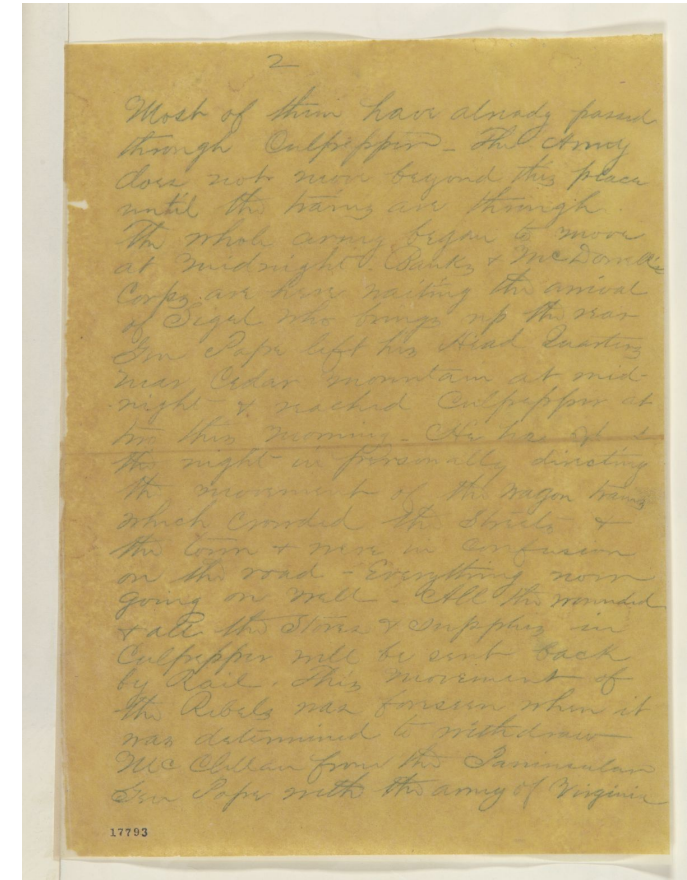 2
Most of them have already passed
through Culpepper – The Army
does not move beyond this place
until the trains are through.
The whole army began to move
at midnight. Banks & McDowell's
Corps are here waiting the arrival
of Sigel who brings up the rear
Gen Pope left his Head Quarters
near Cedar mountain at mid-
night & reached Culpepper at
this morning – He has
the night in personally directing
the movement of the wagon trains
which crowded the Streets &
the town & were in confusion
on the road – Everything now
going on well – All the wounded
& all the Stores & supplies in
Culpepper will be sent back
by Rail. This movement of
the Rebels was foreseen when it
was determined to withdraw
McClellan from the Peninsular
Gen Pope with the army of Virginia
17793